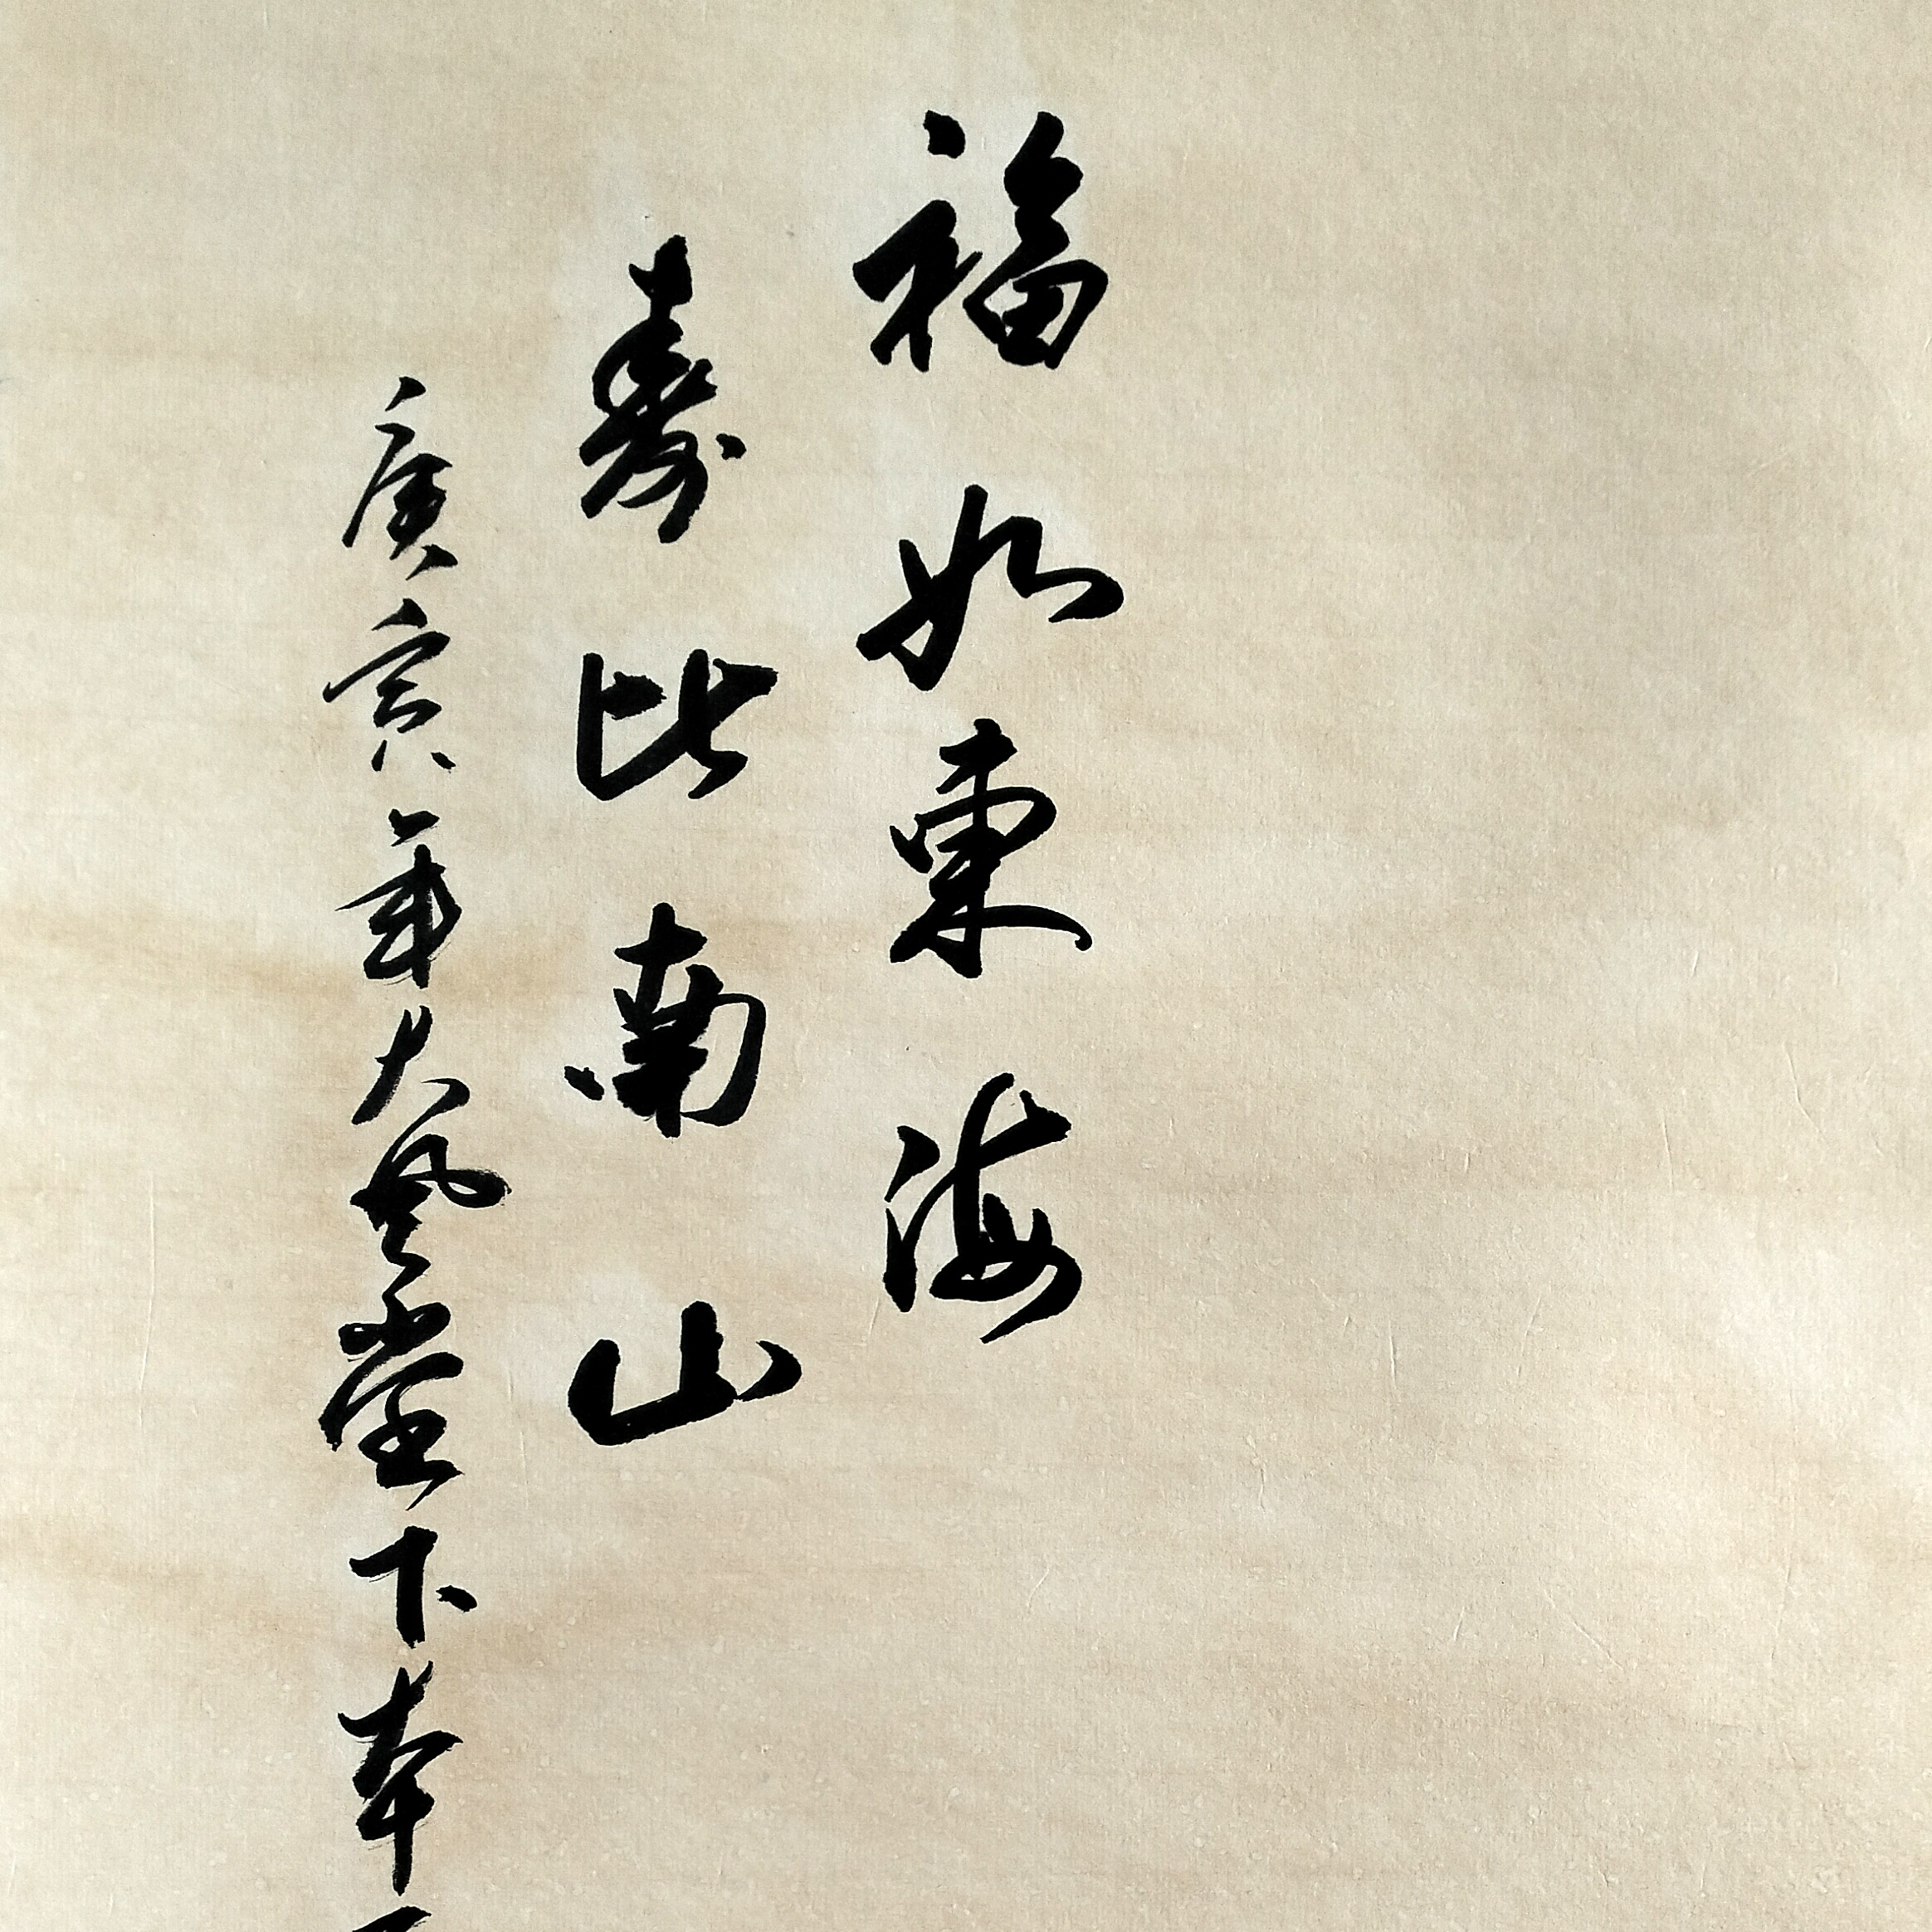 福如東海
壽比南山
庚寅年大風堂下奉